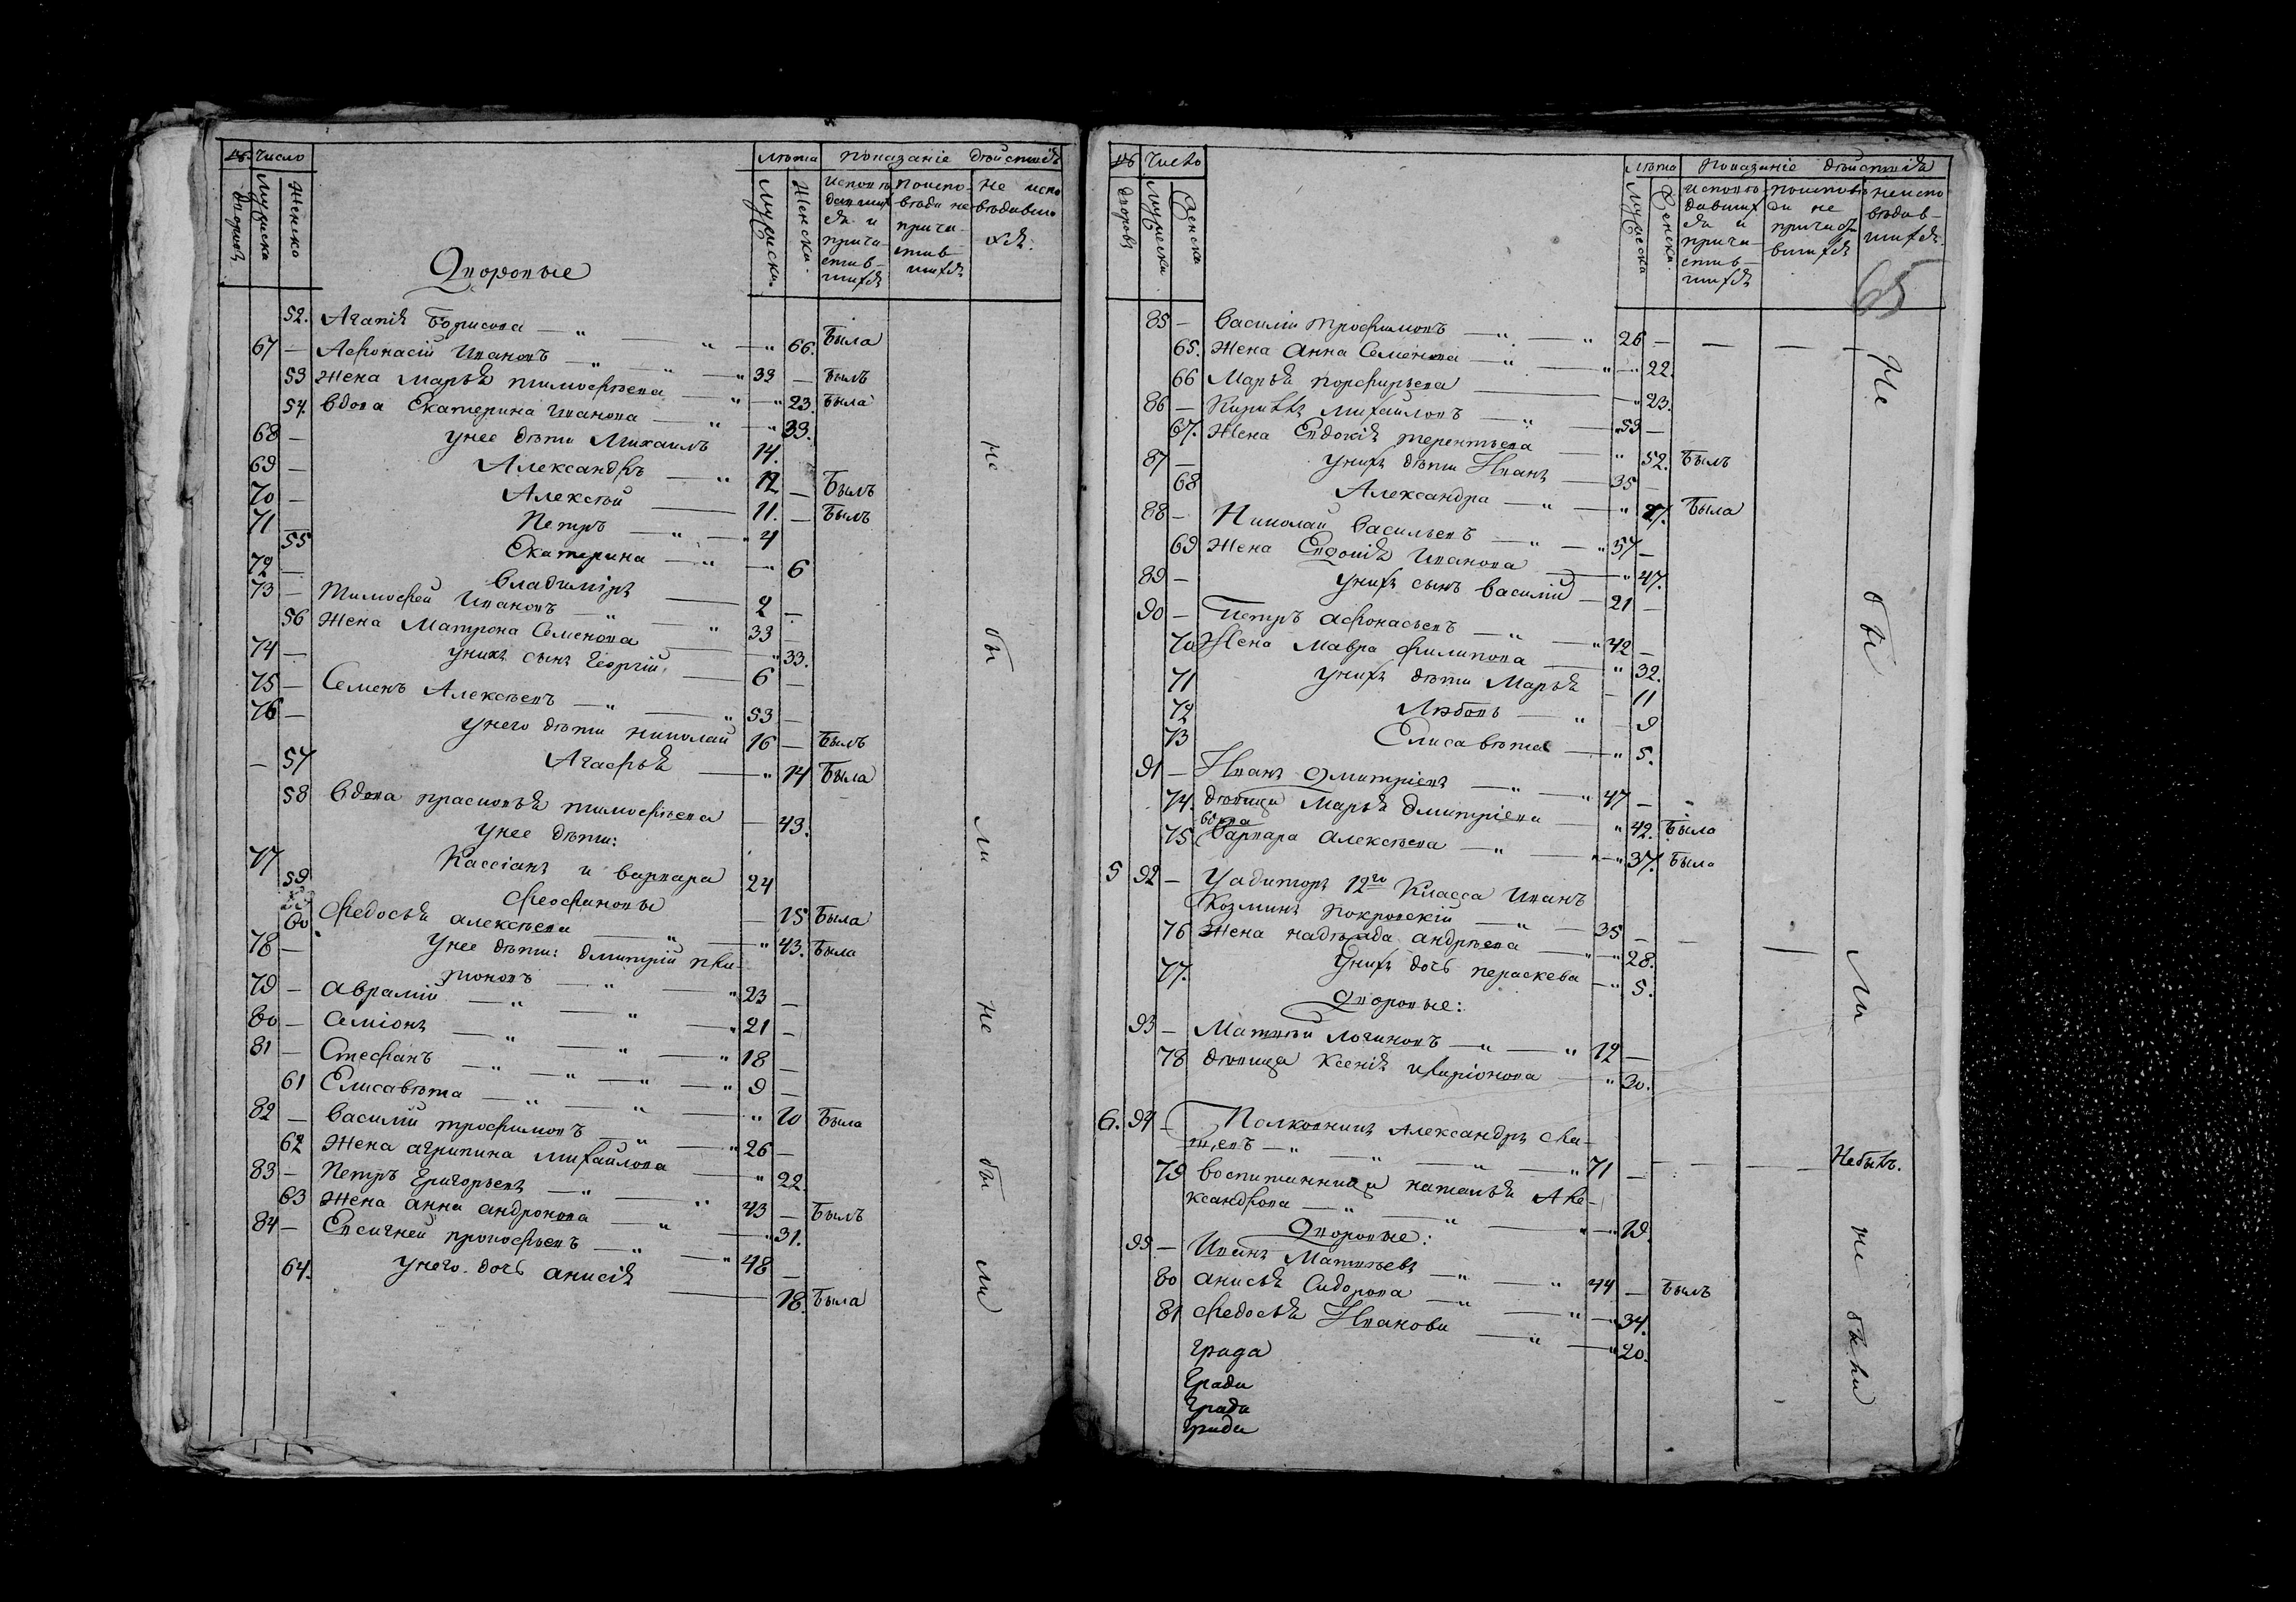 № Число Лѣта Показаніе дѣйствія
дворовъ Мужеска Женско Мужеска. Женска. Исповѣдавшихся и причастившихся Исповѣди не причастившихся Не исповѣдавшихся.
Дворовые
52. Агапія Борисова — 66. Была
67 — Афонасій Ивановъ — 33 — былъ
53 Жена Марья Тимофѣева — 23. была
54. Вдова Екатерина Иванова — 39.
68 — у нее дѣти Михаилъ 14.
69 — Александръ — 12 — Былъ
70 — Алексѣй — 11. — Былъ
71 Петръ — 4
55 Екатерина — 6
72 — Владиміръ — 2 —
73 — Тимофей Ивановъ — 33 —
56 Жена Матрона Семенова — 33.
74 — у нихъ сынъ Георгій. — 6 —
75 — Семенъ Алексѣевъ — 53 —
76 — у него дѣти Николай 16 — Былъ
— 57 Агафья — 14 Была
58 Вдова Прасковья Тимофѣева — 43.
у нее дѣти:
77 Кассіанъ и Варвара 24
59 Феофановы — 15 Была
60 Федосья Алексѣева — 43. Была
78 — у нее дѣти: Дмитрій
79 — Аврамій — 23 —
80 — Симіонъ — 21 —
81 — Стефанъ — 18 —
9 —
61 Елисавѣта — 10 Была
82 — Василій Трофимовъ — 26 —
62 Жена Агрипина Михайлова — 22.
83 — Петръ Григорьевъ — 43 — Былъ
63 Жена Анна Андронова — 31.
84 — Евсигней Прокофьевъ — 48 —
64. у него дочь Анисія — 18. Была
не бы ли не бы ли
№ Число Лѣта Показаніе дѣйствія
Дворовъ Мужеска Женска Мужеска Женска. Исповѣдавшихся и причастившихся Исповѣди не причастившихся Неисповѣдавшихся.
65
85 — Василій Трофимовъ — 26 —
65. Жена Анна Семенова — 22.
66 Марья Порфирьева — 23.
86 — Кирилъ Михайловъ — 59 —
67. Жена Евдокія Терентьева — 52. Былъ
87 — у нихъ дѣти Иванъ — 35 —
68 Александра — 27. Была
88 — Николай Васильевъ — 57 —
69 Жена Евдокія Иванова — 47.
89 — у нихъ сынъ Василій — 21 —
90 — Петръ Афонасьевъ — 42 —
70 Жена Мавра Филипова — 32.
71 у нихъ дѣти Марья — 11
72 Любовь — 9
73 Елисавѣта — 5.
91 — Иванъ Дмитріевъ — 47 —
74. Дѣвица Марья Дмитріева — 42. Была
вдова
75 Варвара Алексѣева — 37. Была
5 92 — Аудиторъ 12го Класса Иванъ
Козминъ Покровскій — 35 —
76 Жена Надѣжда Андрѣева — 28.
77. у нихъ дочь Параскева — 5.
Дворовые:
93 — Матвѣй Логиновъ — 12 —
78 Дѣвица Ксенія Иларіонова — 30.
6. 94 — Полковникъ Александръ
— 71 — Небылъ.
79 Воспитанница Наталья Але-
ксандрова — 19.
Дворовые:
95 — Иванъ Матвѣевъ — 44 — Былъ
80 Анисья Сидорова — 34.
81 Федосья Иванова — 20.
Града
Града
Града
Града
Не бы ли не были